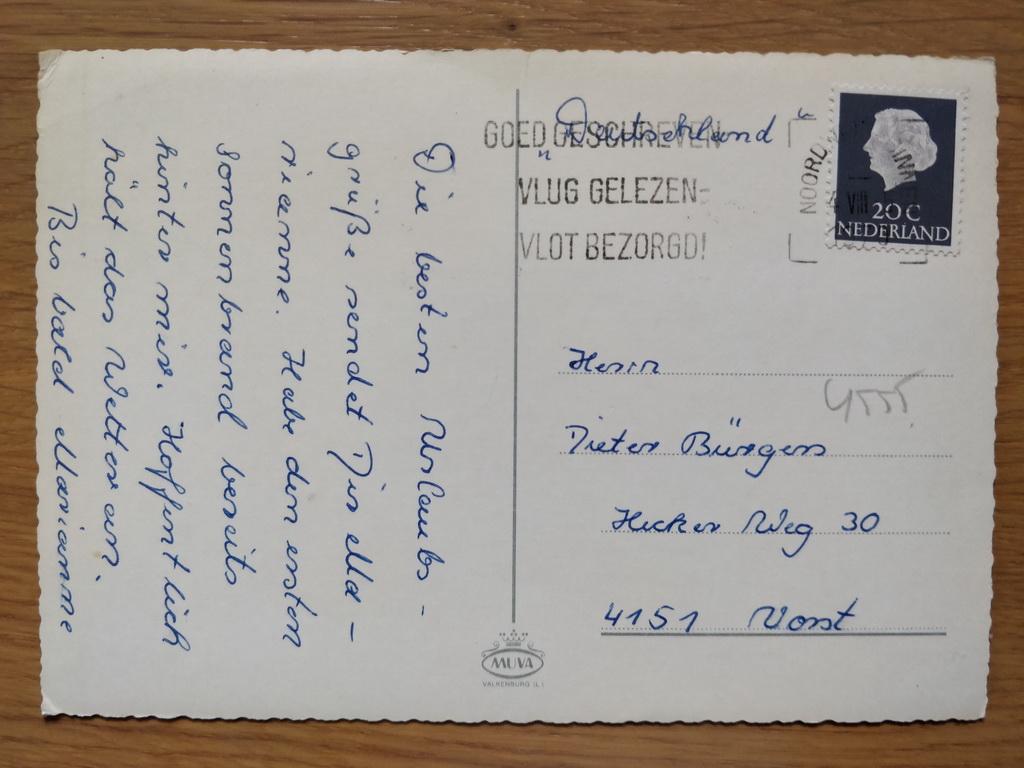 Die besten Urlaubs-
grüße sendet Dir Ma-
rianne. Habe den ersten
Sonnenbrand bereits
hinter mir. Hoffentlich
hält das Wetter an.
Bis bald Marianne
"Deutschland"
GOED GESCHREVEN
VLUG GELEZEN-
VLOT BEZORGD!
NOORD
VIII
20 C
NEDERLAND
Herrn
Dieter Bürgers
Hecker Weg 30
4151 Vorst
MUVA
VALKENBURG (L.)